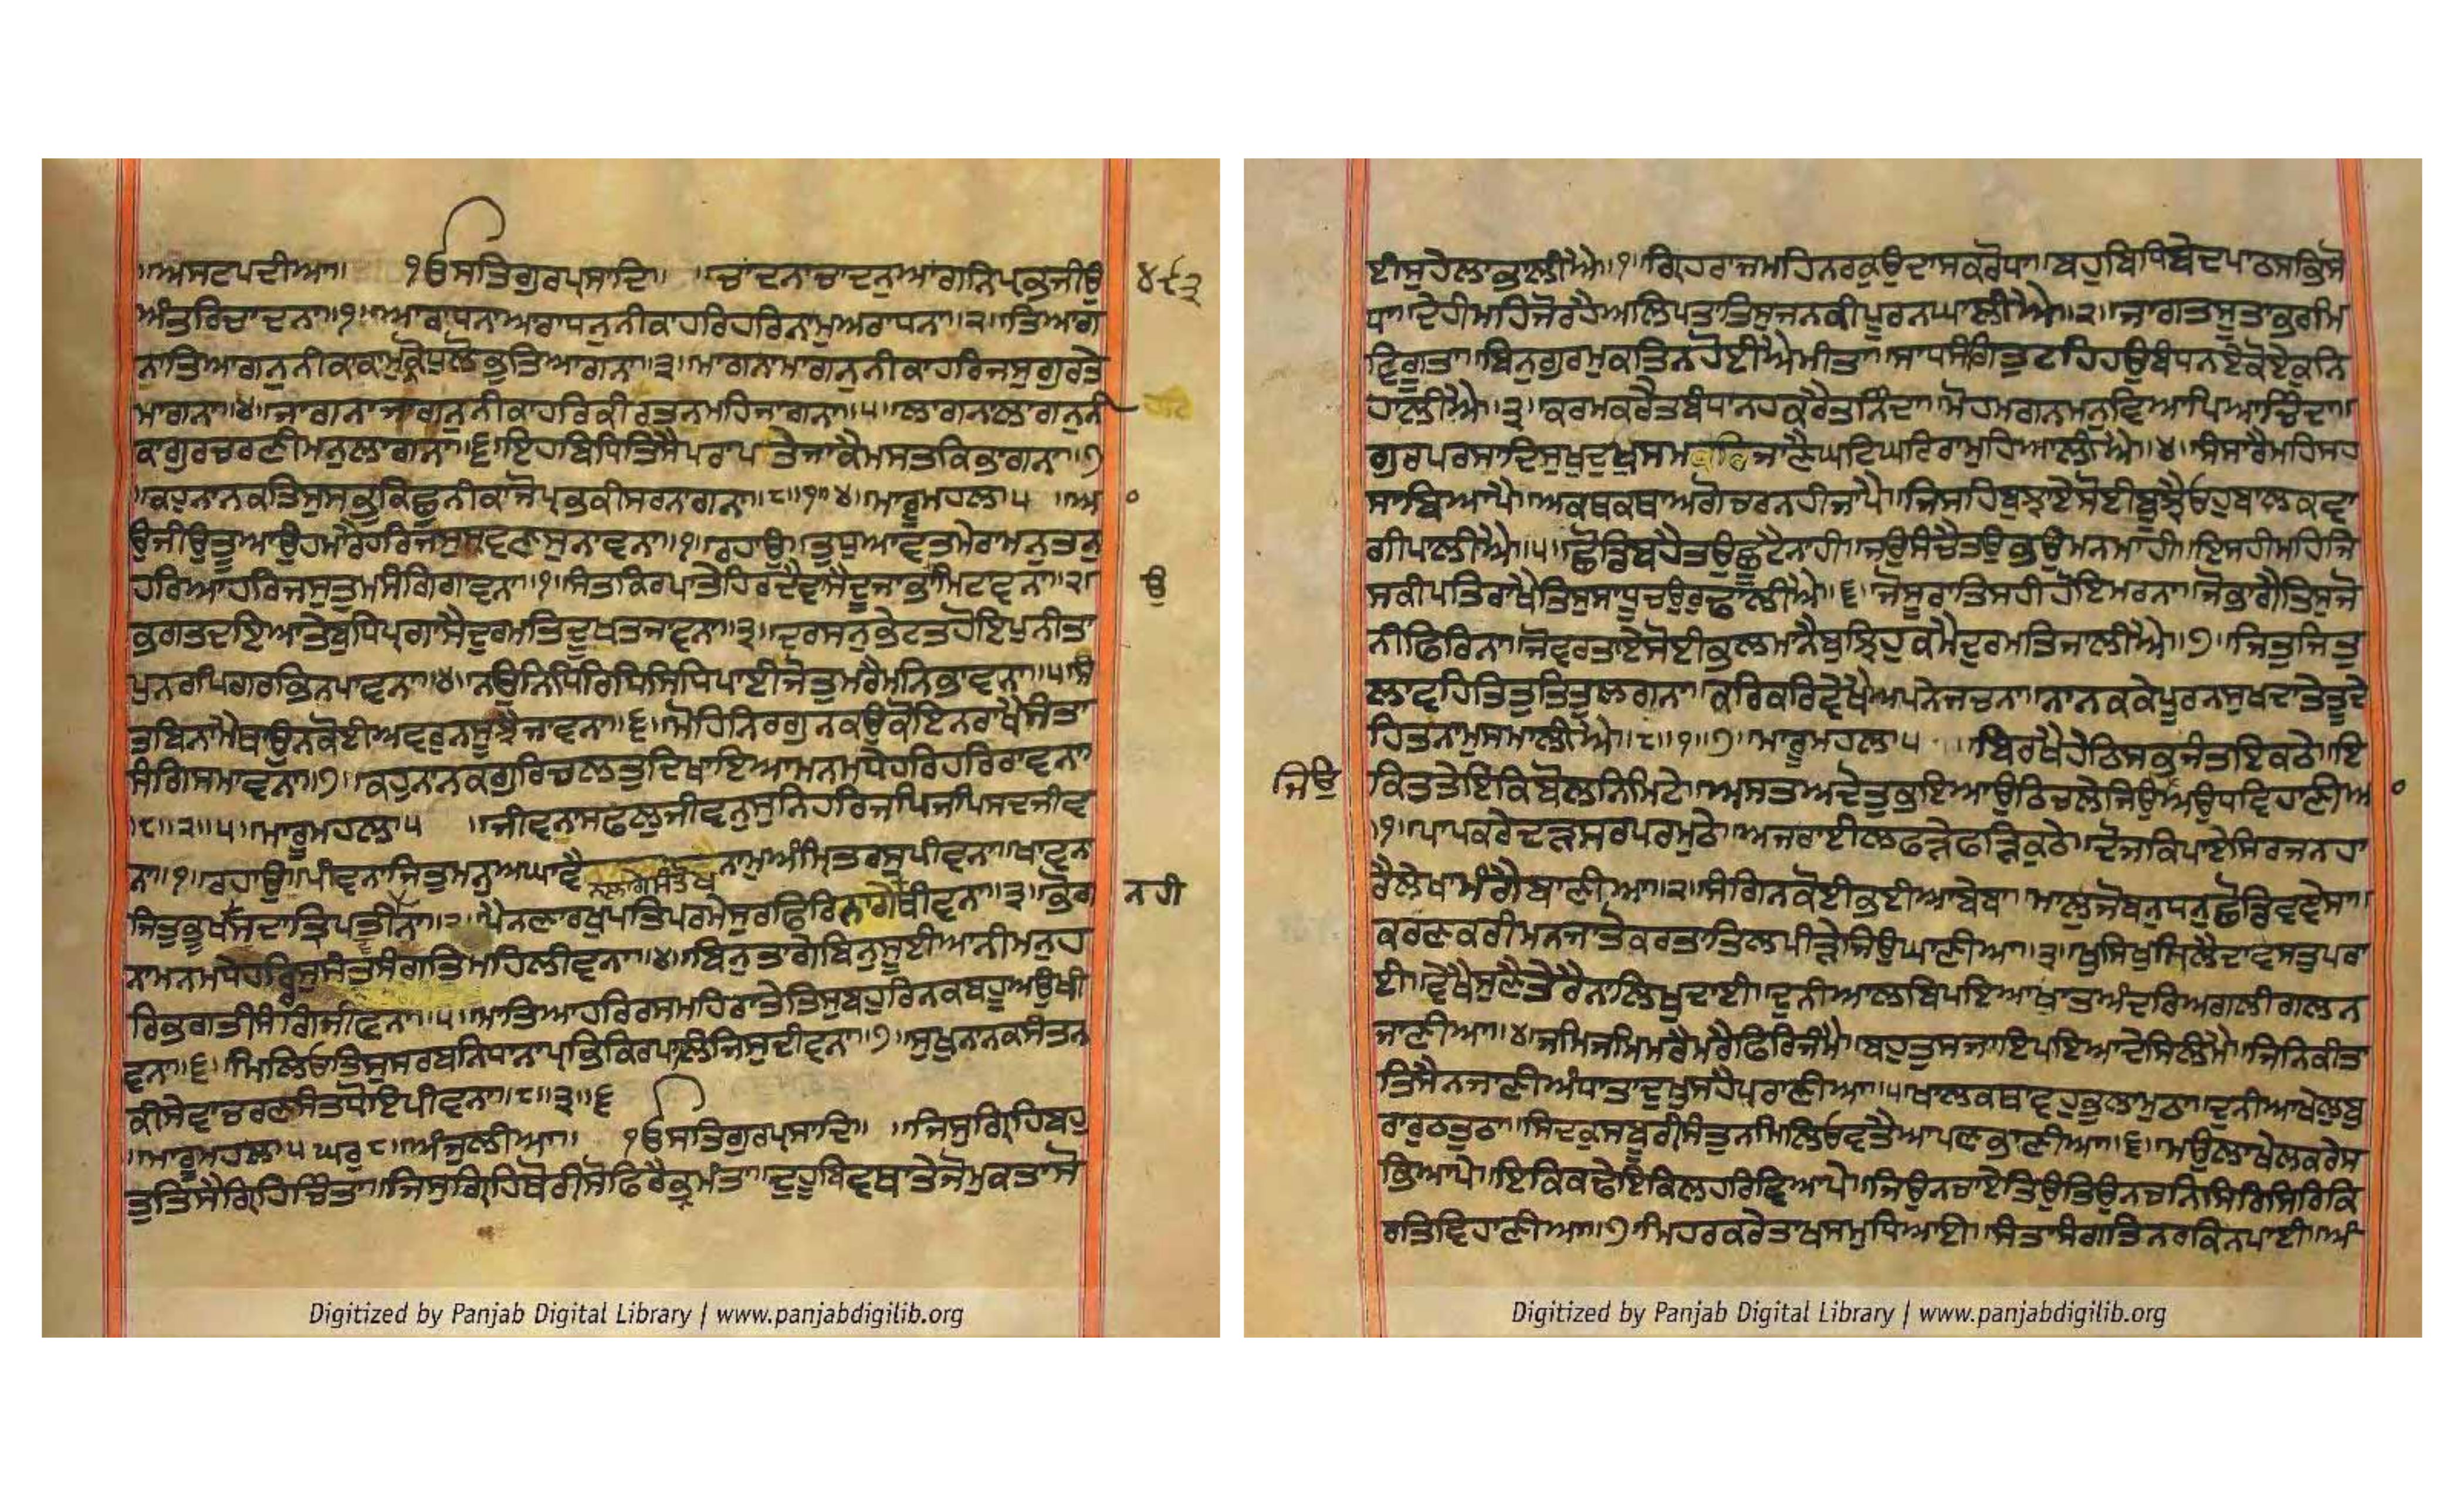 ॥ਅਸਟਪਦੀਆ॥ ੴਸਤਿਗੁਰਪ੍ਰਸਾਦਿ॥ ॥ਚਾਦਨਾਚਾਦਨੁਆਂਗਨਿਪ੍ਰਭਜੀਉ
੪੯੩
ਅੰਤਰਿਚਾਦਨਾ॥੧॥ਆਰਾਧਨਾਅਰਾਧਨੁਨੀਕਾਹਰਿਹਰਿਨਾਮੁਅਰਾਧਨਾ॥੨॥ਤਿਆਗ
ਨਾਤਿਆਗਨੁਨੀਕਾਕਾਮੁਕ੍ਰੋਧੁਲੋਭੁਤਿਆਗਨਾ॥੩॥ਮਾਗਨਾਮਾਗਨੁਨੀਕਾਹਰਿਜਸੁਗੁਰਤੇ
ਮਾਗਨਾ॥੪॥ਜਾਗਨਾਜਾਗਨੁਨੀਕਾਹਰਿਕੀਰਤਨਮਹਿਜਾਗਨਾ॥੫॥ਲਾਗਨਲਾਗਨੁਨੀ
ਕਾਗੁਰਚਰਣੀਮਨੁਲਾਗਨਾ॥੬॥ਇਹਬਿਧਿਤਿਸੈਪਰਾਪਤੇਜਾਕੈਮਸਤਕਿਭਾਗਨਾ॥੭
॥ਕਹੁਨਾਨਕਤਿਸੁਸਭੁਕਿਛੁਨੀਕਾਜੋਪ੍ਰਭਕੀਸਰਨਾਗਨਾ॥੮॥੧॥੪॥ਮਾਰੂਮਹਲਾ੫ ॥ਆ
ਉਜੀਉਤੂਆਉਹਮਾਰੈਹਰਿਜਸੁਸ੍ਰਵਣਸੁਨਾਵਨਾ॥੧॥ਰਹਾਉ॥ਤੁਧੁਆਵਤਮੇਰਾਮਨੁਤਨੁ
ਹਰਿਆਹਰਿਜਸੁਤੁਮਸੰਗਿਗਾਵਨਾ॥੧॥ਸੰਤਕਿਰਪਾਤੇਹਿਰਦੈਵਾਸੈਦੂਜਾਭਾਉਮਿਟਾਵਨਾ॥੨॥
ਉ
ਭਗਤਦਇਆਤੇਬੁਧਿਪ੍ਰਗਾਸੈਦੁਰਮਤਿਦੂਖਤਜਾਵਨਾ॥੩॥ਦਰਸਨੁਭੇਟਤਹੋਇਪੁਨੀਤਾ
ਪੁਨਰਪਿਗਰਭਿਨਪਾਵਨਾ॥੪॥ਨਉਨਿਧਿਰਿਧਿਸਿਧਿਪਾਈਜੋਤੁਮਰੈਮਨਿਭਾਵਨਾ॥੫॥ਸੰ
ਤਬਿਨਾਮੈਥਾਉਨਕੋਈਅਵਰੁਨਸੂਝੈਜਾਵਨਾ॥੬॥ਮੋਹਿਨਿਰਗੁਨਕਉਕੋਇਨਰਾਖੈਸੰਤਾ
ਸੰਗਿਸਮਾਵਨਾ॥੭॥ਕਹੁਨਾਨਕਗੁਰਿਚਲਤੁਦਿਖਾਇਆਮਨਮਧੇਹਰਿਹਰਿਰਾਵਨਾ
॥੮॥੨॥੫॥ਮਾਰੂਮਹਲਾ੫ ॥ਜੀਵਨਾਸਫਲਜੀਵਨੁਸੁਨਿਹਰਿਜਪਿਜਪਿਸਦਜੀਵ
ਨਾ॥੧॥ਰਹਾਉ॥ਪੀਵਨਾਜਿਤੁਮਨੁਅਘਾਵੈਨਾਮੁਅੰਮ੍ਰਿਤਰਸੁਪੀਵਨਾ॥ਖਾਵਨ
ਜਿਤੁਭੂਖਸਦਾਤ੍ਰਿਪਤੀਨਾ॥੨॥ਪੈਨਣਾਰਖੁਪਤਿਪਰਮੇਸੁਰਫਿਰਿਨਾਗੇਥੀਵਨਾ॥੩॥ਭੋਗ
ਨਹੀ
ਨਾਮਨਮਧੇਹਰਿਰਸੁਸੰਤਸੰਗਤਿਮਹਿਲੀਵਨਾ॥੪॥ਬਿਨੁਤਾਗੇਬਿਨੁਸੂਈਆਨੀਮਨੁਹ
ਰਿਭਗਤੀਸੰਗਿਸੀਵਨਾ॥੫॥ਮਾਤਿਆਹਰਿਰਸਮਹਿਰਾਤੇਤਿਸੁਬਹੁਰਿਨਕਬਹੂਅਉਖੀ
ਵਨਾ॥੬॥ਮਿਲਿਓਤਿਸੁਸਰਬਨਿਧਾਨਾਪ੍ਰਭਿਕਿਰਪਾਲਿਜਿਸੁਦੀਵਨਾ॥੭॥ਸੁਖੁਨਾਨਕਸੰਤਨ
ਕੀਸੇਵਾਚਰਣਸੰਤਧੋਇਪੀਵਨਾ॥੮॥੩॥੬
॥ਮਾਰੂਮਹਲਾ੫ਘਰੁ੮॥ਅੰਜੁਲੀਆ॥ ੴਸਤਿਗੁਰਪ੍ਰਸਾਦਿ॥ ॥ਜਿਸੁਗ੍ਰਿਹਿਬਹੁ
ਤੁਤਿਸੈਗ੍ਰਿਹਿਚਿੰਤਾ॥ਜਿਸੁਗ੍ਰਿਹਿਥੋਰੀਸੋਫਿਰੈਭ੍ਰਮੰਤਾ॥ਦੁਹੂਬਿਵਥਾਤੇਜੋਮੁਕਤਾਸੋ
ਈਸੁਹੇਲਾਭਾਲੀਐ॥੧॥ਗ੍ਰਿਹਰਾਜਮਹਿਨਰਕੁਉਦਾਸਕਰੋਧਾ॥ਬਹੁਬਿਧਿਬੇਦਪਾਠਸਭਿਸੋ
ਧਾ॥ਦੇਹੀਮਹਿਜੋਰਹੈਅਲਿਪਤਾਤਿਸੁਜਨਕੀਪੂਰਨਘਾਲੀਐ॥੨॥ਜਾਗਤਸੂਤਾਭਰਮਿ
ਵਿਗੂਤਾ॥ਬਿਨੁਗੁਰਮੁਕਤਿਨਹੋਈਐਮੀਤਾ॥ਸਾਧਸੰਗਿਤੁਟਹਿਹਉਬੰਧਨਏਕੋਏਕੁਨਿ
ਹਾਲੀਐ॥੩॥ਕਰਮਕਰੈਤਬੰਧਾਨਹਕਰੈਤਨਿੰਦਾ॥ਮੋਹਮਗਨਮਨੁਵਿਆਪਿਆਚਿੰਦਾ॥
ਗੁਰਪਰਸਾਦਿਸੁਖੁਦੁਖੁਸਮਜਾਣੈਘਟਿਘਟਿਰਾਮੁਹਿਆਲੀਐ॥੪॥ਸੰਸਾਰੈਮਹਿਸਹ
ਸਾਬਿਆਪੈ॥ਅਕਥਕਥਾਅਗੋਚਰਨਹੀਜਾਪੈ॥ਜਿਸਹਿਬੁਝਾਏਸੋਈਬੂਝੈਓਹੁਬਾਲਕਵਾ
ਗੀਪਾਲੀਐ॥੫॥ਛੋਡਿਬਹੈਤਉਛੂਟੈਨਾਹੀ॥ਜਉਸੰਚੈਤਉਭਉਮਨਮਾਹੀ॥ਇਸਹੀਮਹਿਜਿ
ਸਕੀਪਤਿਰਾਖੈਤਿਸੁਸਾਧੂਚਉਰੁਢਾਲੀਐ॥੬॥ਜੋਸੂਰਾਤਿਸਹੀਹੋਇਮਰਨਾ॥ਜੋਭਾਗੈਤਿਸੁਜੋ
ਨੀਫਿਰਨਾ॥ਜੋਵਰਤਾਏਸੋਈਭਲਮਾਨੈਬੁਝਿਹੁਕਮੈਦੁਰਮਤਿਜਾਲੀਐ॥੭॥ਜਿਤੁਜਿਤੁ
ਲਾਵਹਿਤਿਤੁਤਿਤੁਲਗਨਾ॥ਕਰਿਕਰਿਵੇਖੈਅਪਨੇਜਚਨਾ॥ਨਾਨਕਕੇਪੂਰਨਸੁਖਦਾਤੇਤੂਦੇ
ਹਿਤਨਾਮੁਸਮਾਲੀਐ॥੮॥੧॥੭॥ਮਾਰੂਮਹਲਾ੫ ॥ਬਿਰਖੈਹੇਠਿਸਭਜੰਤਇਕਠੇ॥ਇ
ਜਿਉ
ਕਿਤਤੇਇਕਿਬੋਲਨਿਮਿਠੇ॥ਅਸਤਅਦੇਤੁਭਇਆਉਠਿਚਲੇਜਿਉਅਉਧਵਿਹਾਣੀਆ
॥੧॥ਪਾਪਕਰੇਦੜਸਰਪਰਮੁਠੇ॥ਅਜਰਾਈਲਫੜੇਫੜਿਕੁਠੇ॥ਦੋਜਕਿਪਾਏਸਿਰਜਨਹਾ
ਰੈਲੇਖਾਮੰਗੈਬਾਣੀਆ॥੨॥ਸੰਗਿਨਕੋਈਭਈਆਬੇਬਾ॥ਮਾਲੁਜੋਬਨੁਧਨੁਛੋਡਿਵਞੇਸਾ॥
ਕਰਣਕਰੀਮਨਜਾਤੋਕਰਤਾਤਿਲਪੀੜੇਜਿਉਘਾਣੀਆ॥੩॥ਖੁਸਿਖੁਸਿਲੈਦਾਵਸਤੁਪਰਾ
ਈ॥ਵੇਖੈਸੁਣੇਤੇਰੈਨਾਲਿਖੁਦਾਈ॥ਦੁਨੀਆਲਬਿਪਇਆਖਾਤਅੰਦਰਿਅਗਲੀਗਲਨ
ਜਾਣੀਆ॥੪॥ਜਮਿਜਮਿਮਰੈਮਰੈਫਿਰਿਜੰਮੈ॥ਬਹੁਤੁਸਜਾਇਪਇਆਦੇਸਿਲੰਮੈ॥ਜਿਨਿਕੀਤਾ
ਤਿਸੈਨਜਾਣੀਅੰਧਾਤਾਦੁਖੁਸਹੈਪਰਾਣੀਆ॥੫॥ਖਾਲਕਥਾਵਹੁਭੁਲਾਮੁਠਾ॥ਦੁਨੀਆਖੇਲੁਬੁ
ਰਾਰੁਠਤੁਠਾ॥ਸਿਦਕੁਸਬੂਰੀਸੰਤੁਨਮਿਲਿਓਵਤੈਆਪਣਭਾਣੀਆ॥੬॥ਮਉਲਾਖੇਲਕਰੇਸ
ਭਿਆਪੇ॥ਇਕਿਕਢੇਇਕਿਲਹਰਿਵਿਆਪੇ॥ਜਿਉਨਚਾਏਤਿਉਤਿਉਨਚਨਿਸਿਰਿਸਿਰਿਕਿ
ਰਤਿਵਿਹਾਣੀਆ॥੭॥ਮਿਹਰਕਰੇਤਾਖਸਮੁਧਿਆਈ॥ਸੰਤਾਸੰਗਤਿਨਰਕਿਨਪਾਈ॥ਅੰ
Digitized by Panjab Digital Library | www.panjabdigilib.org
Digitized by Panjab Digital Library | www.panjabdigilib.org